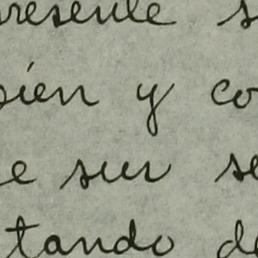 resente s
bién y co
e sus se
tando de